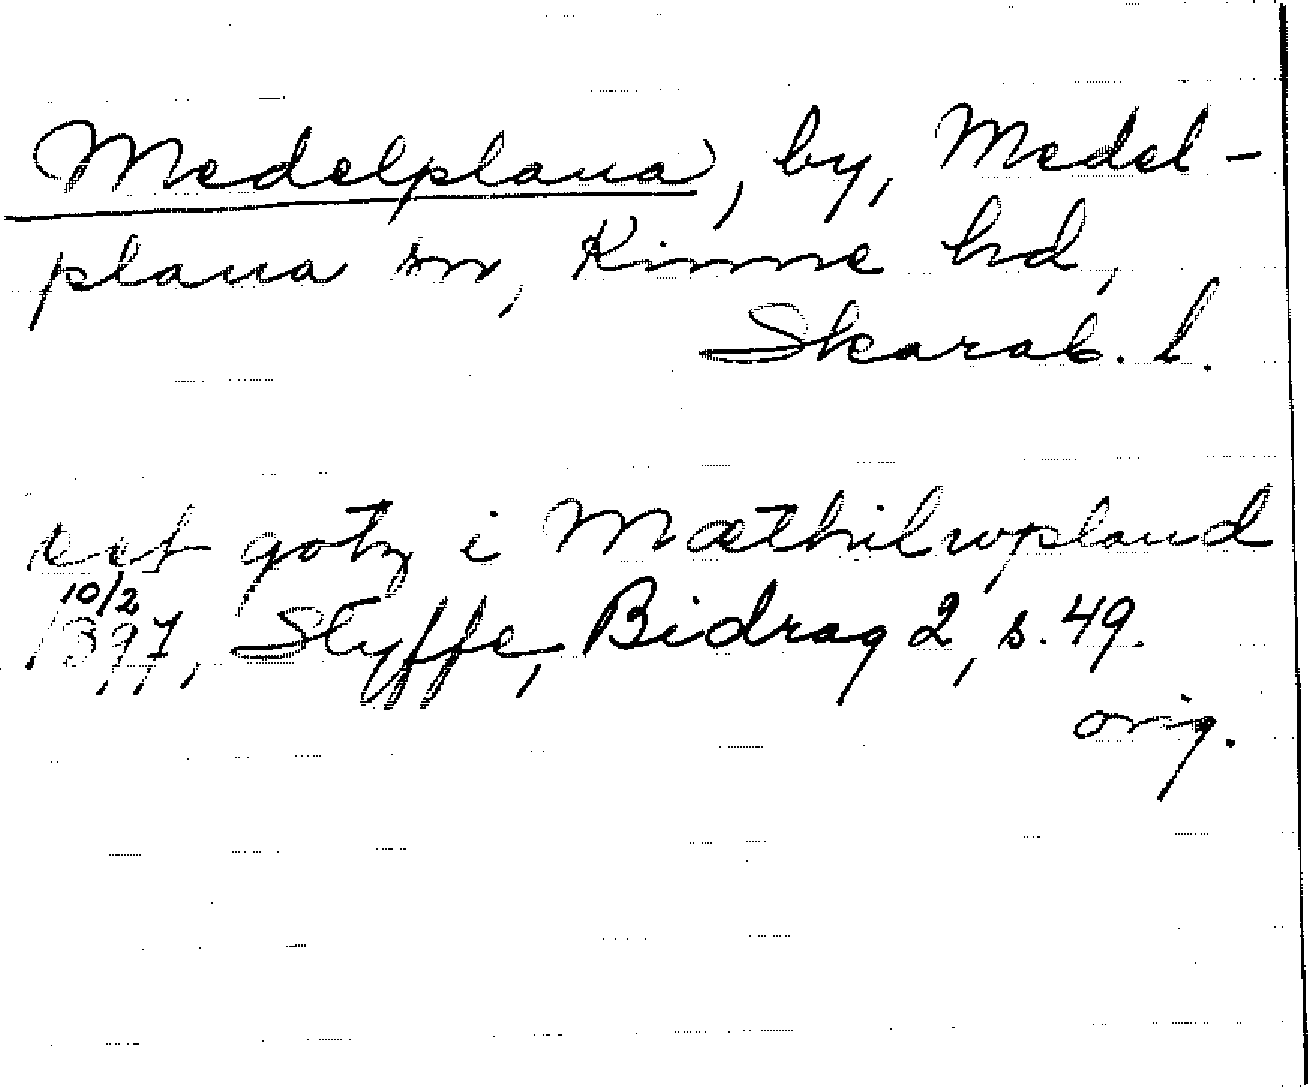 Medelplana, by, Medel-
plana sn, Kinne hd,
Skarab. l.
eet gotz i Mæthilwpland
10/2
1397, Styffe, Bidrag 2, s. 49.
orig.